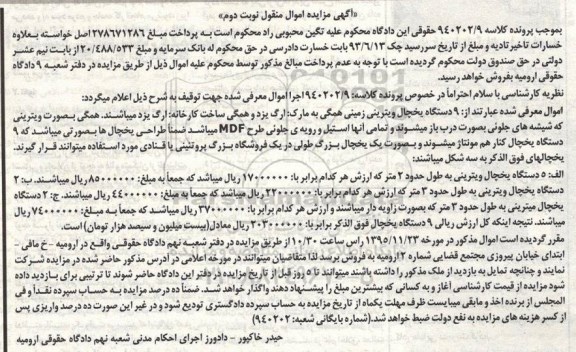 «آگهی مزایده اموال منقول نوبت دوم»
بموجب پرونده کلاسه ۹۴۰۲۰۲/۹ حقوقی این دادگاه محکوم علیه نگین محبوبی راد محکوم است به پرداخت مبلغ ۲۷۸۶۷۱۲۸۶ اصل خواسته بعلاوه
خسارات تاخیر تادیه و مبلغ از تاریخ سررسید چک ۹۳/۶/۱۳ بابت خسارت دادرسی در حق محکوم له بانک سرمایه و مبلغ ۲۰/۴۸۸/۵۳۳ از بابت نیم عشر
دولتی در حق صندوق دولت محکوم گردیده است با توجه به عدم پرداخت مبالغ مذکور توسط محکوم علیه اموال ذیل از طریق مزایده در دفتر شعبه ۹ دادگاه
حقوقی ارومیه بفروش خواهد رسید.
نظریه کارشناسی با سلام احتراماً در خصوص پرونده کلاسه: ۹۴۰۲۰۲/۹ اجرا اموال معرفی شده جهت توقیف به شرح ذیل اعلام میگردد:
اموال معرفی شده عبارتند از: ۹ دستگاه یخچال ویترینی زمینی همگی به مارک: ارگ یزد و همگی ساخت کارخانه: ارگ یزد میباشند. همگی بصورت ویترینی
که شیشه های جلونی بصورت درب باز میشوند و تمامی آنها استیل و رویه ی جلونی طرح MDF میباشد ضمناً طراحی یخچال ها بصورتی میباشد که ۹
دستگاه یخچال کنار هم مونتاژ میشوند و بصورت یک یخچال بزرگ طولی در یک فروشگاه بزرگ پروتئینی یا قنادی مورد استفاده میتوانند قرار گیرند.
یخچالهای فوق الذکر به سه شکل میباشند:
الف: ۵ دستگاه یخچال ویترینی به طول حدود ۲ متر که ارزش هر کدام برابر با: ۱۷۰۰۰۰۰۰ ریال میباشد که جمعاً به مبلغ: ۸۵۰۰۰۰۰۰ ریال میباشند. ب: ۲
دستگاه یخچال ویترینی به طول حدود ۳ متر که ارزش هر کدام برابر با: ۲۲۰۰۰۰۰۰ ریال میباشد که جمعاً به مبلغ: ۴۴۰۰۰۰۰۰ ریال میباشند. ج: ۲ دستگاه
یخچال میترینی به طول حدود ۳ متر که بصورت زاویه دار میباشند و ارزش هر کدام برابر با: ۳۷۰۰۰۰۰۰ ریال میباشد که جمعاً به مبلغ: ۷۴۰۰۰۰۰۰ ریال
میباشند. نتیجه اینکه کل ارزش ریالی ۹ دستگاه یخچال فوق الذکر برابر با: ۲۰۳۰۰۰۰۰۰ ریال معادل (بیست میلیون و سیصد هزار تومان) است.
مقرر گردیده است اموال مذکور در مورخه ۱۳۹۵/۱۱/۲۳ راس ساعت ۱۰/۳۰ از طریق مزایده در دفتر شعبه نهم دادگاه حقوقی واقع در ارومیه - خ مافی -
ابتدای خیابان پیروزی مجتمع قضایی شماره ۲ ارومیه به فروش برسد لذا متقاضیان میتوانند در مورخه اعلامی در آدرس مذکور حاضر شده در مزایده شرکت
نمایند و چنانچه تمایل به بازدید از ملک مذکور را داشته باشند میتوانند تا ۵ روز قبل از تاریخ مزایده در دفتر این دادگاه حاضر شوند تا ترتیبی برای بازدید داده
شود مزایده از قیمت کارشناسی آغاز و به کسانی که بیشترین مبلغ را پیشنهاد دهند واگذار خواهد شد. ضمناً ده درصد مزایده به حساب سپرده نقداً و فی
المجلس از برنده اخذ و مابقی میبایست ظرف مهلت یکماه از تاریخ مزایده به حساب سپرده دادگستری تودیع شود و در غیر این صورت ده درصد واریزی پس
از کسر هزینه های مزایده به نفع دولت ضبط خواهد شد.(شماره بایگانی شعبه: ۹۴۰۲۰۲)
حیدر خاکپور - دادورز اجرای احکام مدنی شعبه نهم دادگاه حقوقی ارومیه